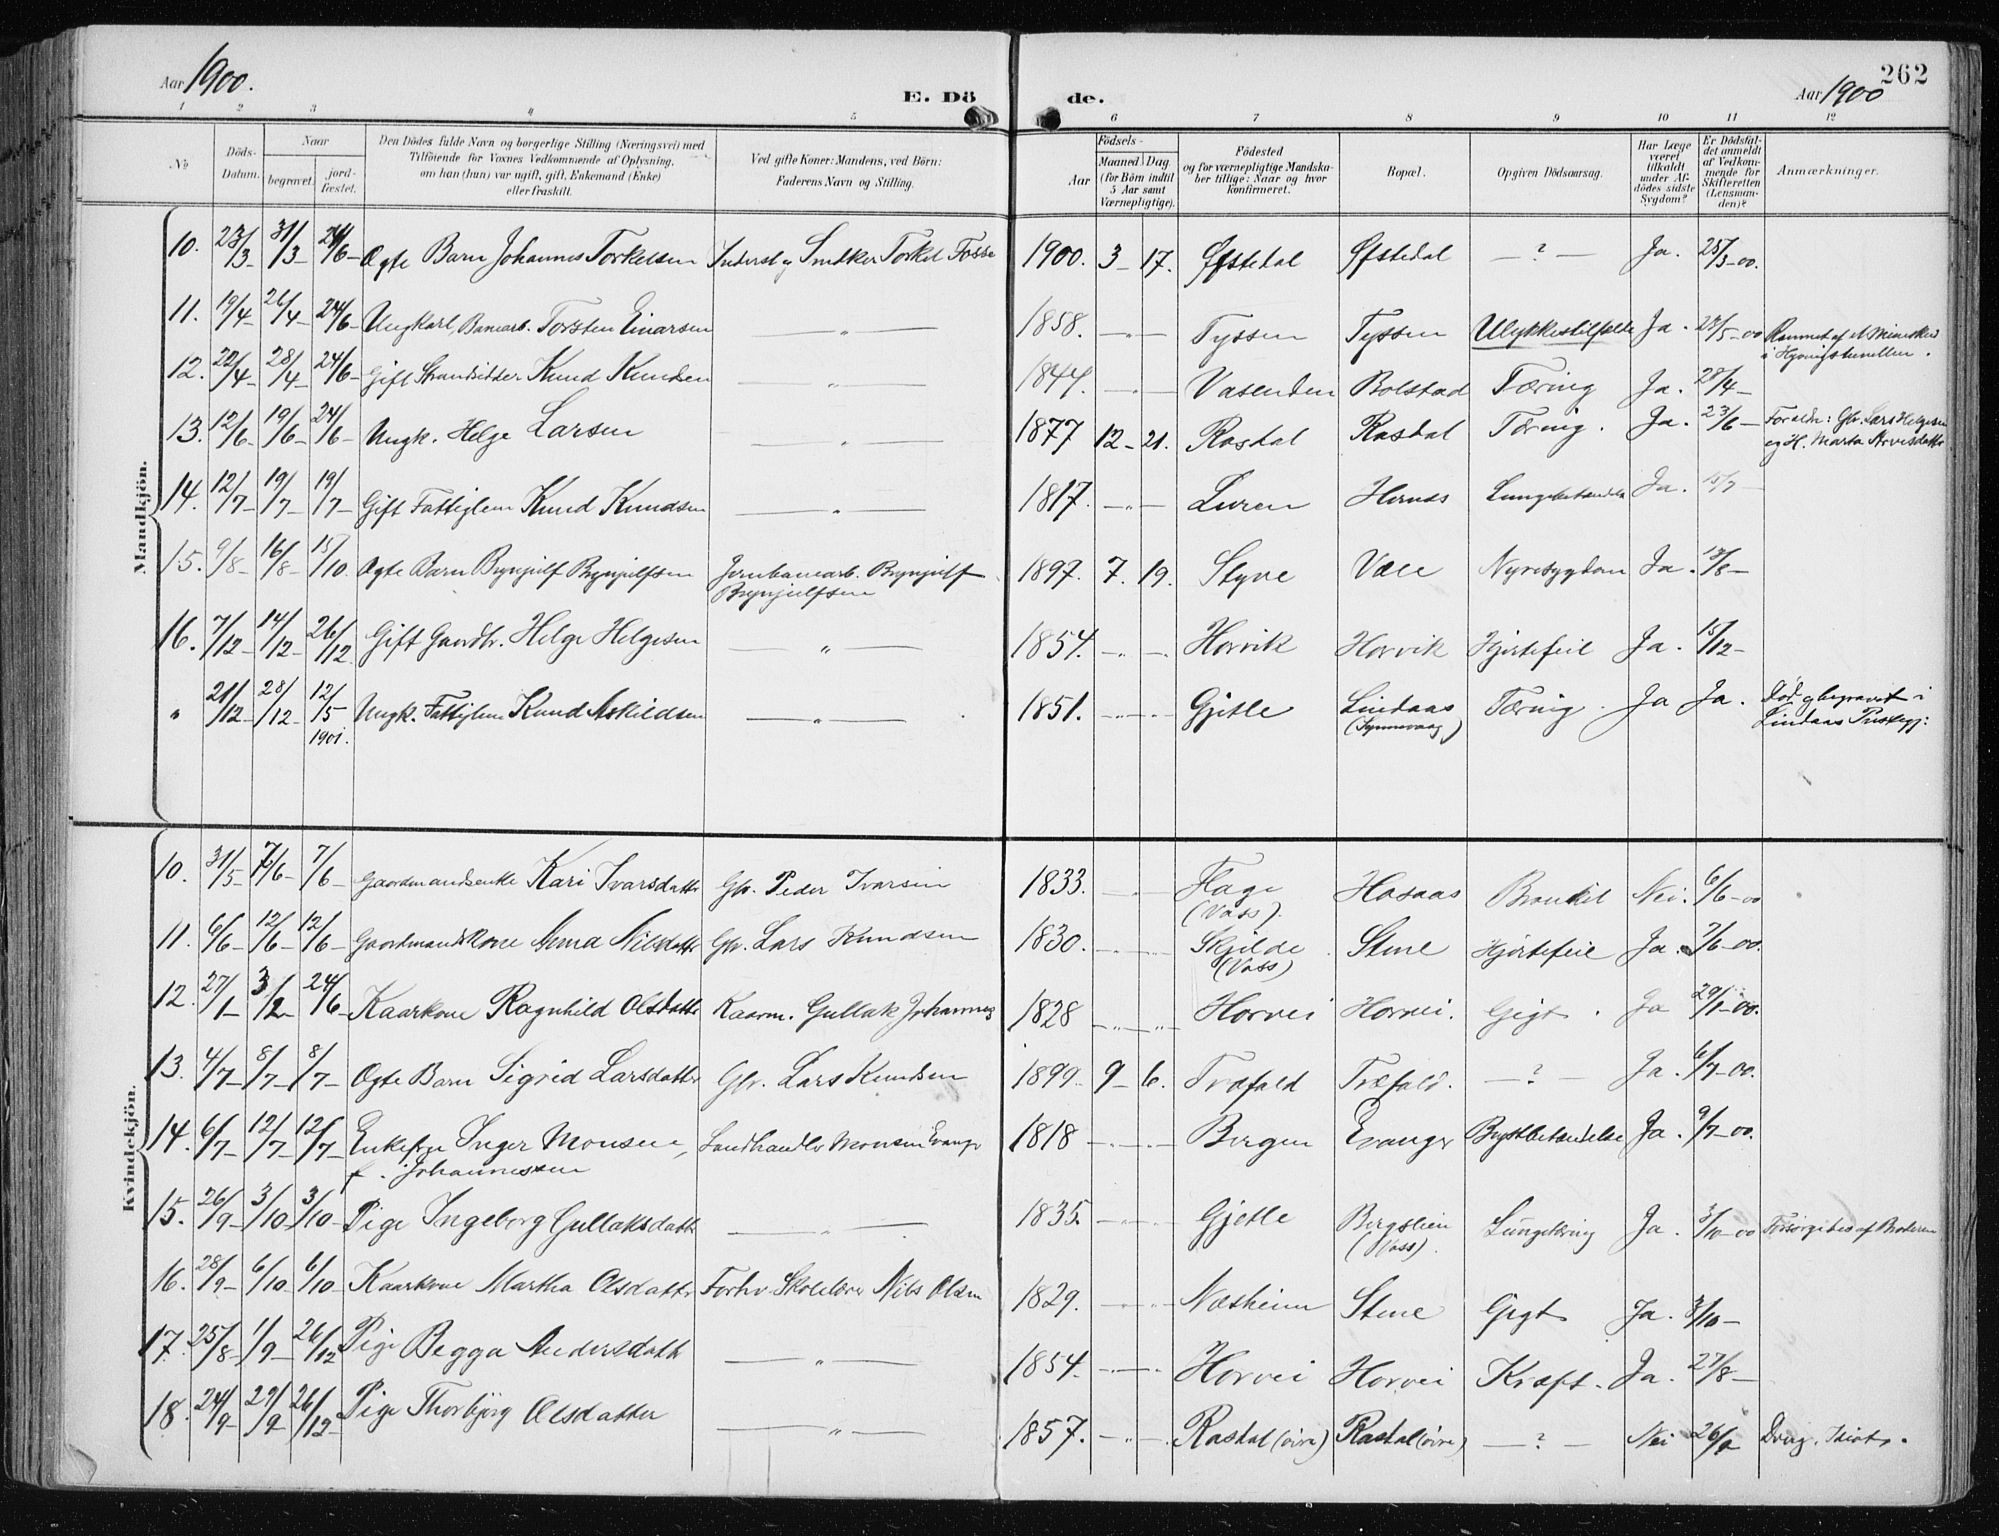 Aar 1900.
E. Döde.
Aar 1900
262
1 2 3 4 5 6 7 8 9 10 11 12
No
Döds-Datum.
Naar
begravet.
jord-fæstet.
Den Dödes fulde Navn og borgerlige Stilling (Næringsvei) med
Tilföiende for Voxnes Vedkommende af Oplysning,
om han (hun) var ugift, gift, Enkemand (Enke)
eller fraskilt.
Ved gifte Koner: Mandens, ved Börn:
Faderens Navn og Stilling.
Födsels-
Aar
Maaned Dag
(for Börn indtil
5 Aar samt
Værnepligtige).
Födested
og for værnepligtige Mandska-
ber tillige: Naar og hvor
konfirmeret.
Bopæl.
Opgiven Dödsaarsag.
Har Læge
været
tilkaldt
under Af-
dödes sidste
Sygdom?
Er Dödsfal-
det anmeldt
af Vedkom-
mende for
Skifteretten
(Lensman-
den)?
Anmærkninger.
Mandkjön.
10. 23/3 31/3 24/6 Ægte Barn Johannes Torkelsen Inderst og Snedker Torkel Fosse 1900. 3 17. Øfstedal Øfstedal ? Ja. 25/3-00.
11. 19/4 26/4 24/6 Ungkarl, Banearb. Torsten Einarsen " 1858. " Tyssen Tyssen Ulykkestilfælde Ja. 23/5-00 Rammet af et Mineskud
i
12. 22/4 28/4 24/6 Gift Strandsidder Knud Knudsen " 1844. " Vasenden Bolstad Tæring Ja. 28/4
13. 12/6 19/6 24/6 Ungk. Helge Larsen " 1877 12 21. Rasdal Rasdal Tæring. Ja. 23/6 Forældr: Gbr. Lars Helgesen
og H. Marta
14. 12/7 19/7 19/7 Gift Fattiglem Knud Knudsen " 1817. " Luren Hernes Lungebetændelse Ja. 15/7
15. 9/8 16/8 15/10 Ægte Barn Brynjulf Brynjulfsen Jernbanearb. Brynjulf
Brynjulfsen 1897. 7. 19. Styve Væle Nyresygdom Ja. 13/8
16. 7/12 14/12 26/12 Gift Gaardbr. Helge Helgesen " 1854. " Horvik Horvik Hjertefeil Ja. 15/12
" 21/12 28/12 12/5 1901. Ungk. Fattiglem Knud Askildsen " 1851. " Gjetle Lindaas Tæring. Ja Ja. Død og begravet i
Lindaas Prestegj:
Kvindekjön.
10. 31/5 7/6 7/6 Gaardmandsenke Kari Ivarsdatter Gbr. Peder Ivarsen 1833. " Flage
(Vass). Hasaas Nei. 6/6-00
11. 6/6 12/6 12/6 Gaardmandskone Anna Nilsdatter Gbr. Lars Knudsen 1830. " Skjilde
(Vass) Stine Hjertefeil Ja. 7/6-00.
12. 27/1 3/2 24/6 Kaarkone Ragnhild Olsdatter Kaarm. Gullak Johannes 1828 " Horvei Horvei. Gigt. Ja 29/1-00.
13. 4/7 8/7 8/7 Ægte Barn Sigrid Larsdatter Gbr. Lars Knudsen 1899 9 6. Træfald Træfald. ? Ja. 6/7-00.
14. 6/7 12/7 12/7 Enkefru Inger Monsen,
f. Johannessen Landhandler Monsen Evanger 1818 " Bergen Evanger Brystbetændelse Ja. 9/7-00.
15. 26/9 3/10 3/10 Pige Ingeborg Gullaksdatter " 1835. " Gjetle Bergslien
(Vass). Lungetæring Ja. 3/10-00 Forsørgedes af Broderen
16. 28/9 6/10 6/10 Kaarkone Martha Olsdatter Forhv Skolelærer Nils Olsen 1829. " Næsheim Stine Gigt Ja. 3/10
17. 25/8 1/9 26/12 Pige Begga Andersdatter " 1854. " Horvei Horvei Kræft. Ja. 27/8
18. 24/9 29/9 26/12 Pige Thorbjørg Olsdatter " 1857. " Rasdal (øvre) Rasdal (øvre) ? Nei 26/9 Idiot.